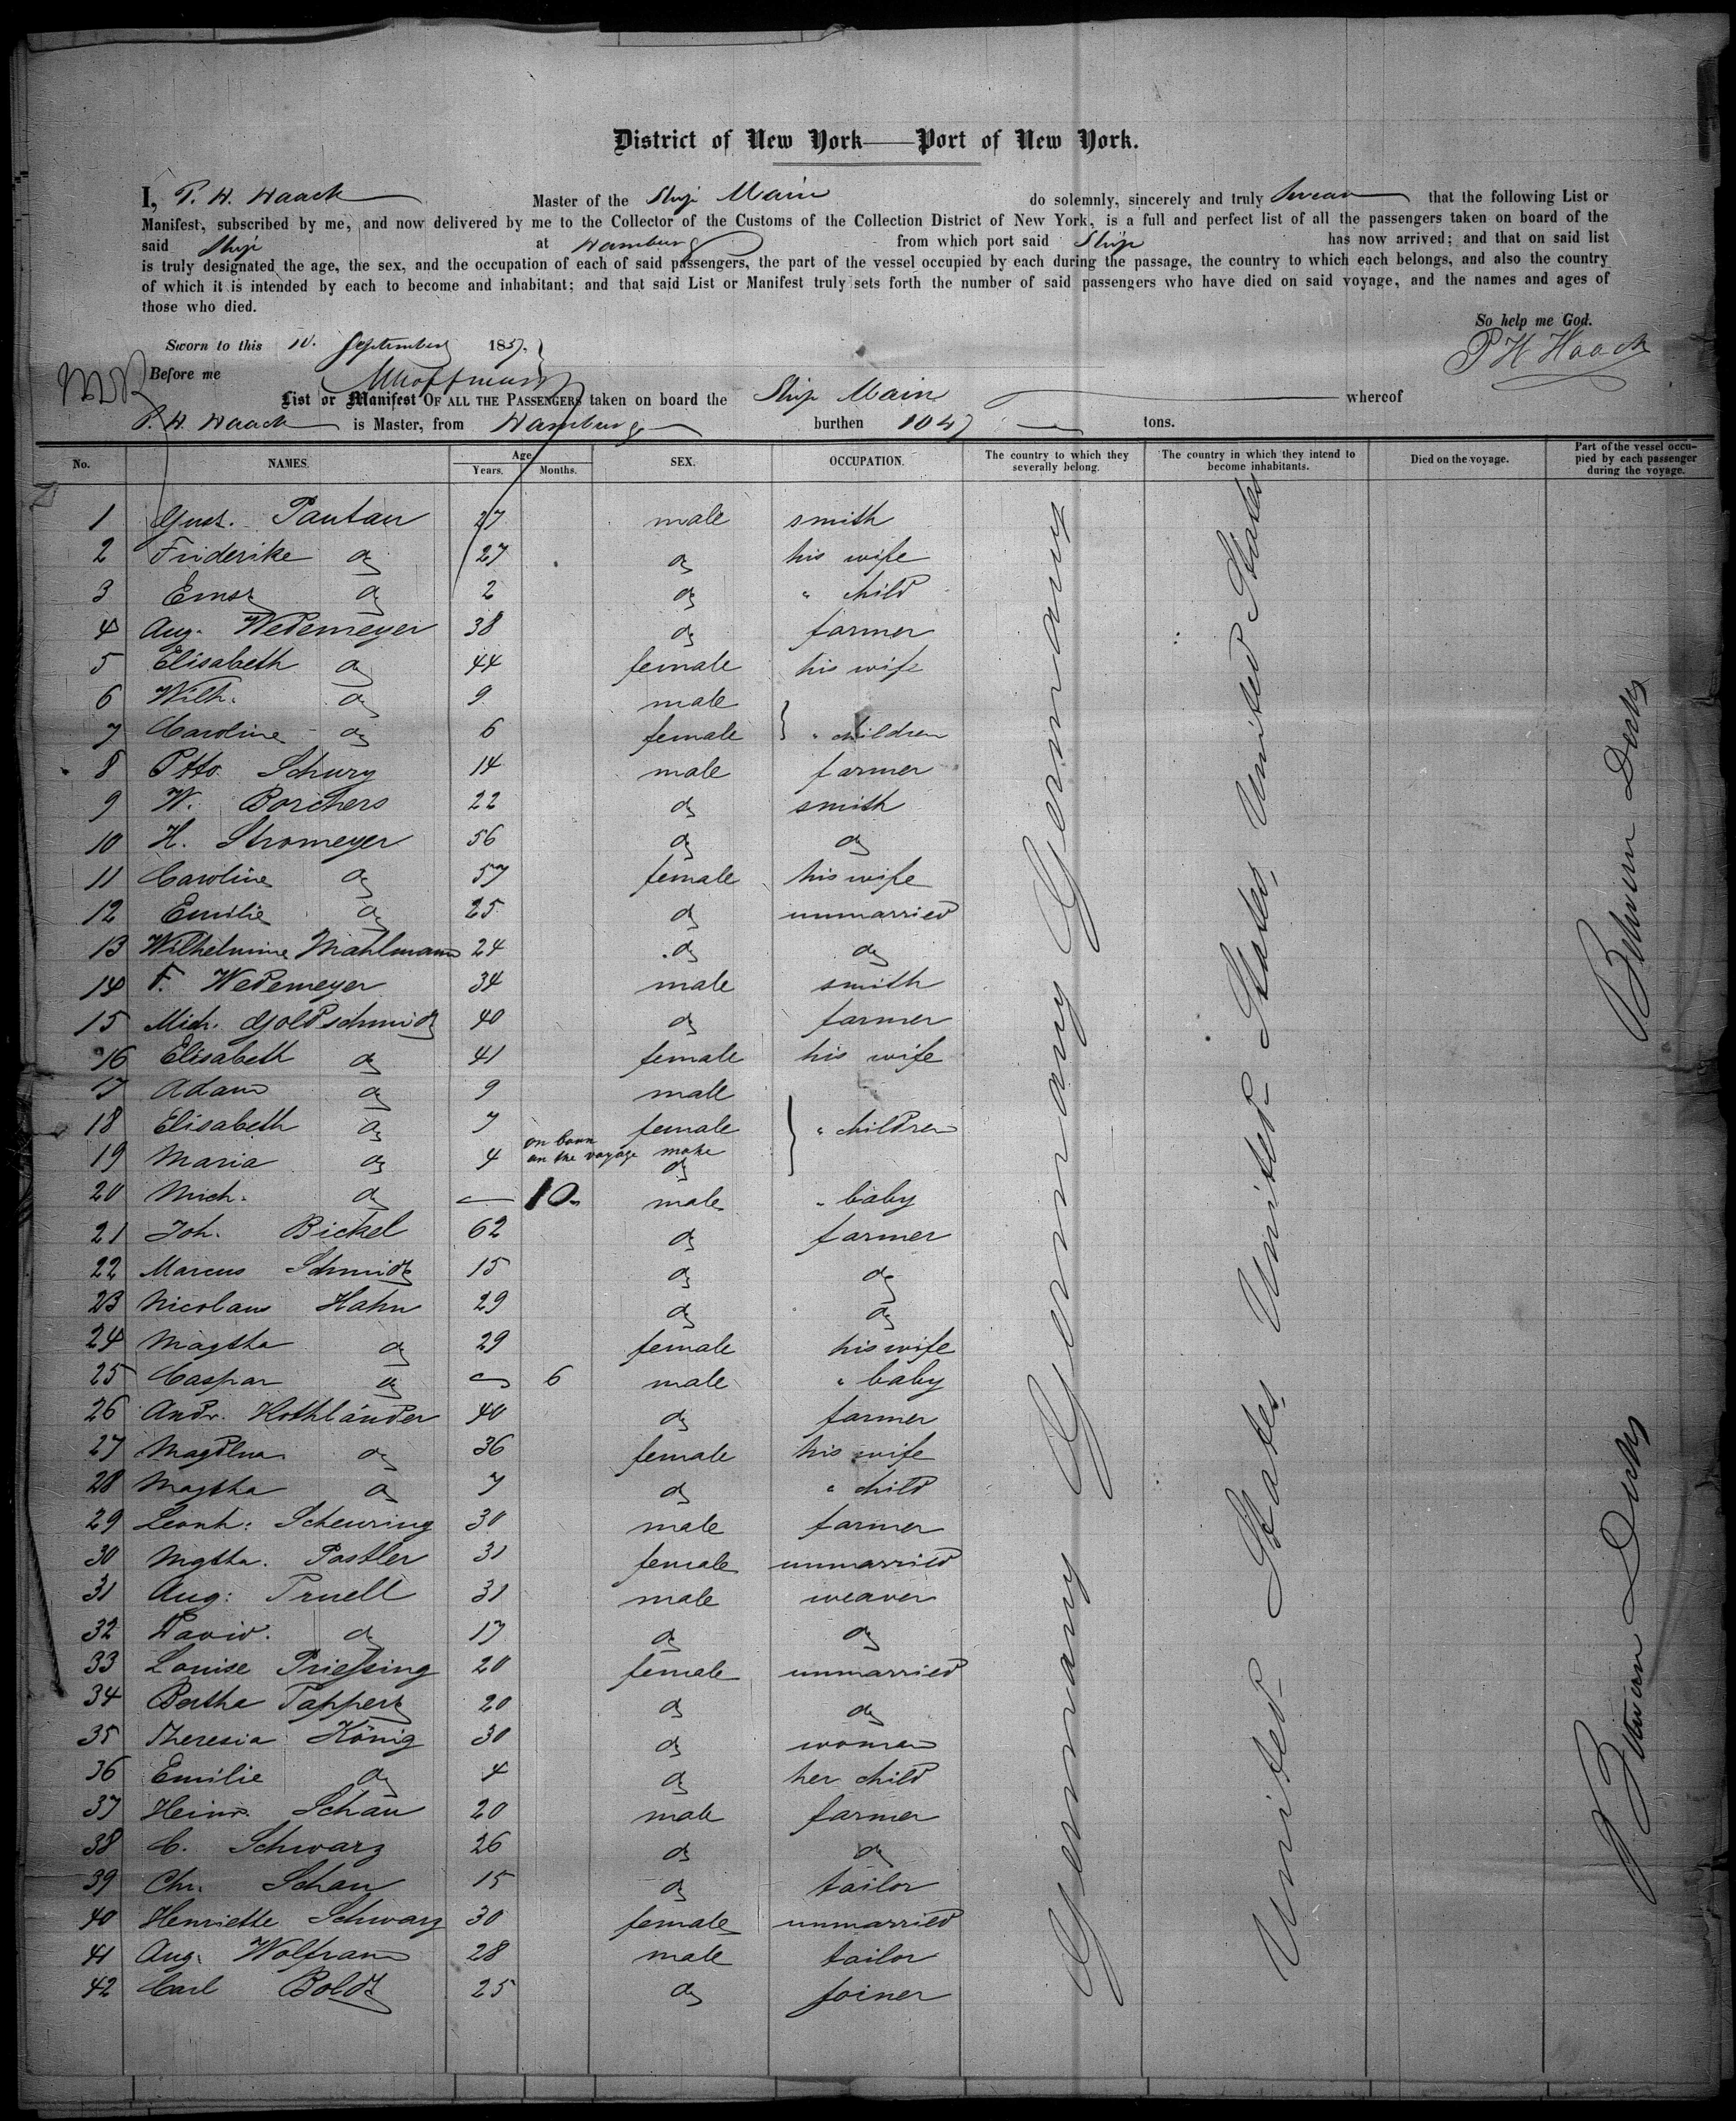 District of New York——Port of New York.
I, P. H. Haack Master of the Ship Main do solemnly, sincerely and truly swear that the following List or
Manifest, subscribed by me, and now delivered by me to the Collector of the Customs of the Collection District of New York, is a full and perfect list of all the passengers taken on board of the
said Ship at Hamburg from which port said Ship has now arrived; and that on said list
is truly designated the age, the sex, and the occupation of each of said passengers, the part of the vessel occupied by each during the passage, the country to which each belongs, and also the country
of which it is intended by each to become and inhabitant; and that said List or Manifest truly sets forth the number of said passengers who have died on said voyage, and the names and ages of
those who died.
So help me God.
Sworn to this 10. September 1857. P H Haack
Before me
List or Manifest OF ALL THE PASSENGERS taken on board the Ship Main whereof
P. H. Haack is Master, from Hamburg burthen 1047 tons.
No. NAMES. Age Years. Months. SEX. OCCUPATION. The country to which they severally belong. The country in which they intend to become inhabitants. Died on the voyage. Part of the vessel occupied by each passenger during the voyage.
1 Gust. Pantau 27 male smith
2 Friderike do 27 do his wife
3 Ernst do 2 do " child
4 Aug. Wedemeyer 38 do farmer
5 Elisabeth do 44 female his wife
6 Wilh. do 9 male
7 Caroline do 6 female } " children
8 Otto Schurg 14 male farmer
9 W. Borchers 22 do smith
10 H. Stromeyer 56 do do
11 Caroline do 57 female his wife
12 Emilie do 25 do unmarried
13 Wilhelmine Mahlmann 24 do do
14 F. Wedemeyer 34 male smith
15 Mich. Goldschmidt 40 do farmer
16 Elisabeth do 41 female his wife
17 Adam do 9 male
18 Elisabeth do 7 female } " children
19 Maria do 4 on the voyage do
20 Mich. do — 10 male " baby
21 Joh. Bickel 62 do farmer
22 Marcus Schmidt 15 do do
23 Nicolaus Hahn 29 do do
24 Magtha do 29 female his wife
25 Caspar do — 6 male " baby
26 Andr. Hothländer 40 do farmer
27 Magdlna do 36 female his wife
28 Magtha do 7 do " child
29 Leonh: Scheuring 30 male farmer
30 Mgtha. Postler 31 female unmarried
31 Aug: Pruell 31 male weaver
32 David. do 17 do do
33 Louise Priessing 20 female unmarried
34 Bertha Tappert 20 do do
35 Theresia König 30 do woman
36 Emilie do 4 do her child
37 Heinr. Schau 20 male farmer
38 C. Schwarz 26 do do
39 Chr. Schau 15 do tailor
40 Henriette Schwarz 30 female unmarried
41 Aug. Wolfram 28 male tailor
42 Carl Boldt 25 do joiner
Germany Germany Germany Germany
United States United States United States
Between Decks Between Decks